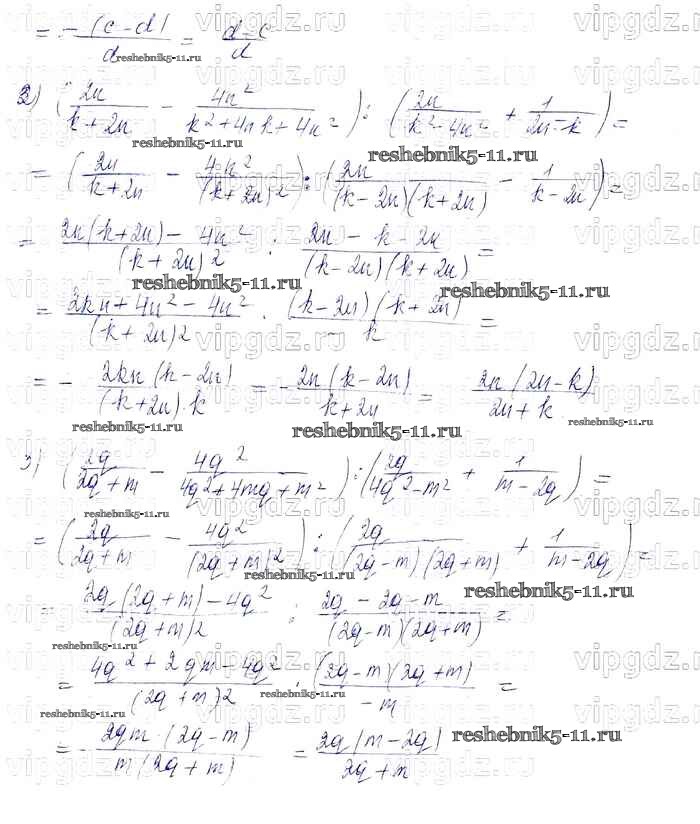 = - (c - d) / d = d - c / d
2) (2n / k + 2n - 4n² / k² + 4nk + 4n²) : (2n / k² - 4n² + 1 / 2n - k) =
= (2n / k + 2n - 4n² / (k + 2n)2) : (2n / (k - 2n)(k + 2n) - 1 / k - 2n) =
= 2n(k + 2n) - 4n² / (k + 2n)2 : 2n - k - 2n / (k - 2n)(k + 2n) =
= 2kn + 4n² - 4n² / (k + 2n)2 · (k - 2n)(k + 2n) / k =
= - 2kn(k - 2n) / (k + 2n)k = - 2n(k - 2n) / k + 2n = 2n(2n - k) / 2n + k
3) (2q / 2q + m - 4q² / 4q² + 4mq + m²) : (2q / 4q² - m² + 1 / m - 2q) =
= (2q / 2q + m - 4q² / (2q + m)2) : (2q / (2q - m)(2q + m) + 1 / m - 2q) =
= 2q(2q + m) - 4q² / (2q + m)2 : 2q - 2q - m / (2q - m)(2q + m) =
= 4q² + 2qm - 4q² / (2q + m)2 : (2q - m)(2q + m) / - m =
= - 2qm · (2q - m) / m(2q + m) = 2q(m - 2q) / 2q + m
vipgdz.ru
reshebnik5-11.ru